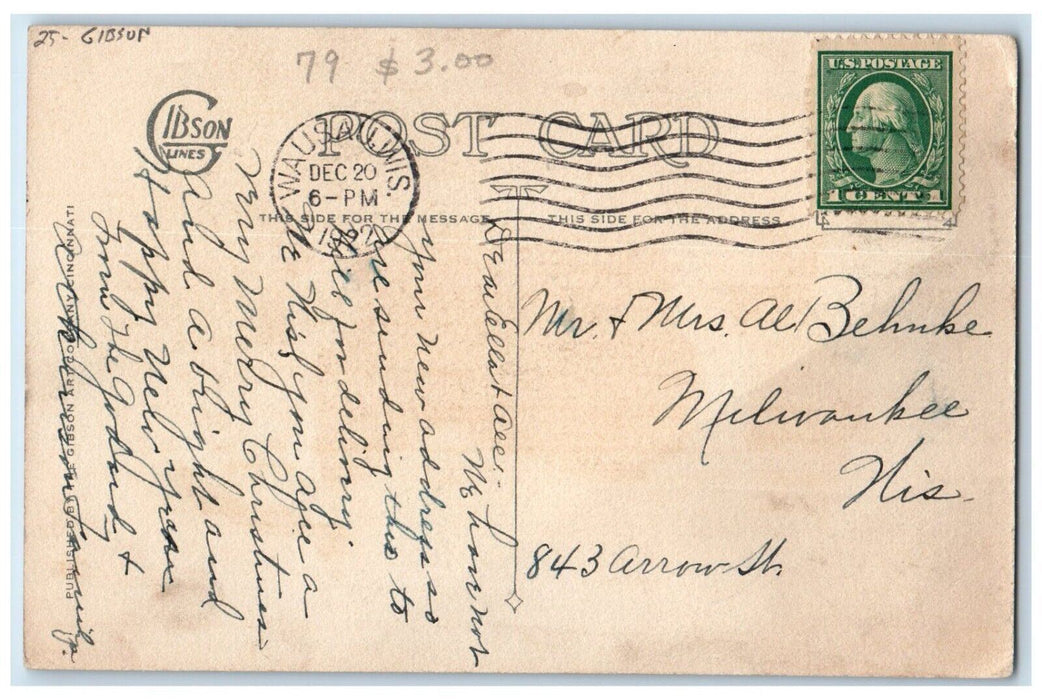 25- GIBSON
79 $3.00
GIBSON
LINES
POST CARD
WAUSAU, WIS.
DEC 20
6-PM
U.S. POSTAGE
1 CENTS 1
THIS SIDE FOR THE MESSAGE
THIS SIDE FOR THE ADDRESS
Mr. & Mrs. Al Behnke
Milwaukee
Wis.
843 Arrow St.
Dear Ella & all:-
have not
your new address so
are sending this to
for delivery
We Wish you all a
Very Merry Christmas
And a bright and
Happy New year
from The &
family.
PUBLISHED BY THE GIBSON ART COMPANY, CINCINNATI